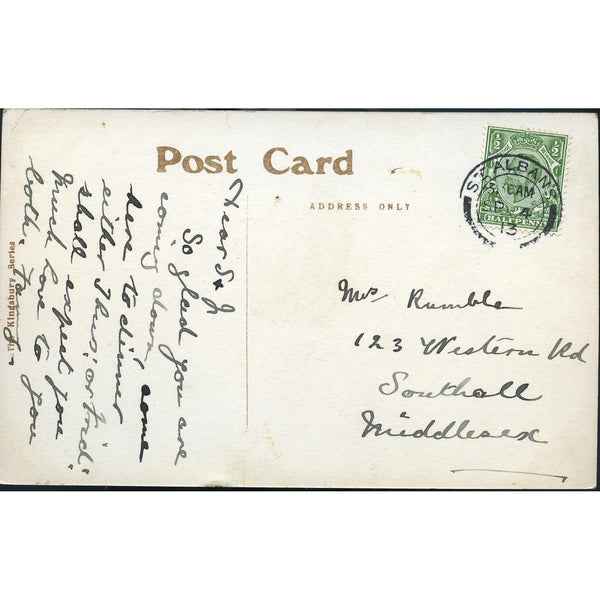 Post Card
ADDRESS ONLY
The Kingsbury Series
Dear S & J
So glad you are
coming down, come
here to dinner
either Thurs; or Frid:
shall expect you
Much love to you
both.
½ ½
HALFPENNY
ST ALBANS
AM
SP 4
13
Mrs Rumble
123 Western Rd
Southall
Middlesex